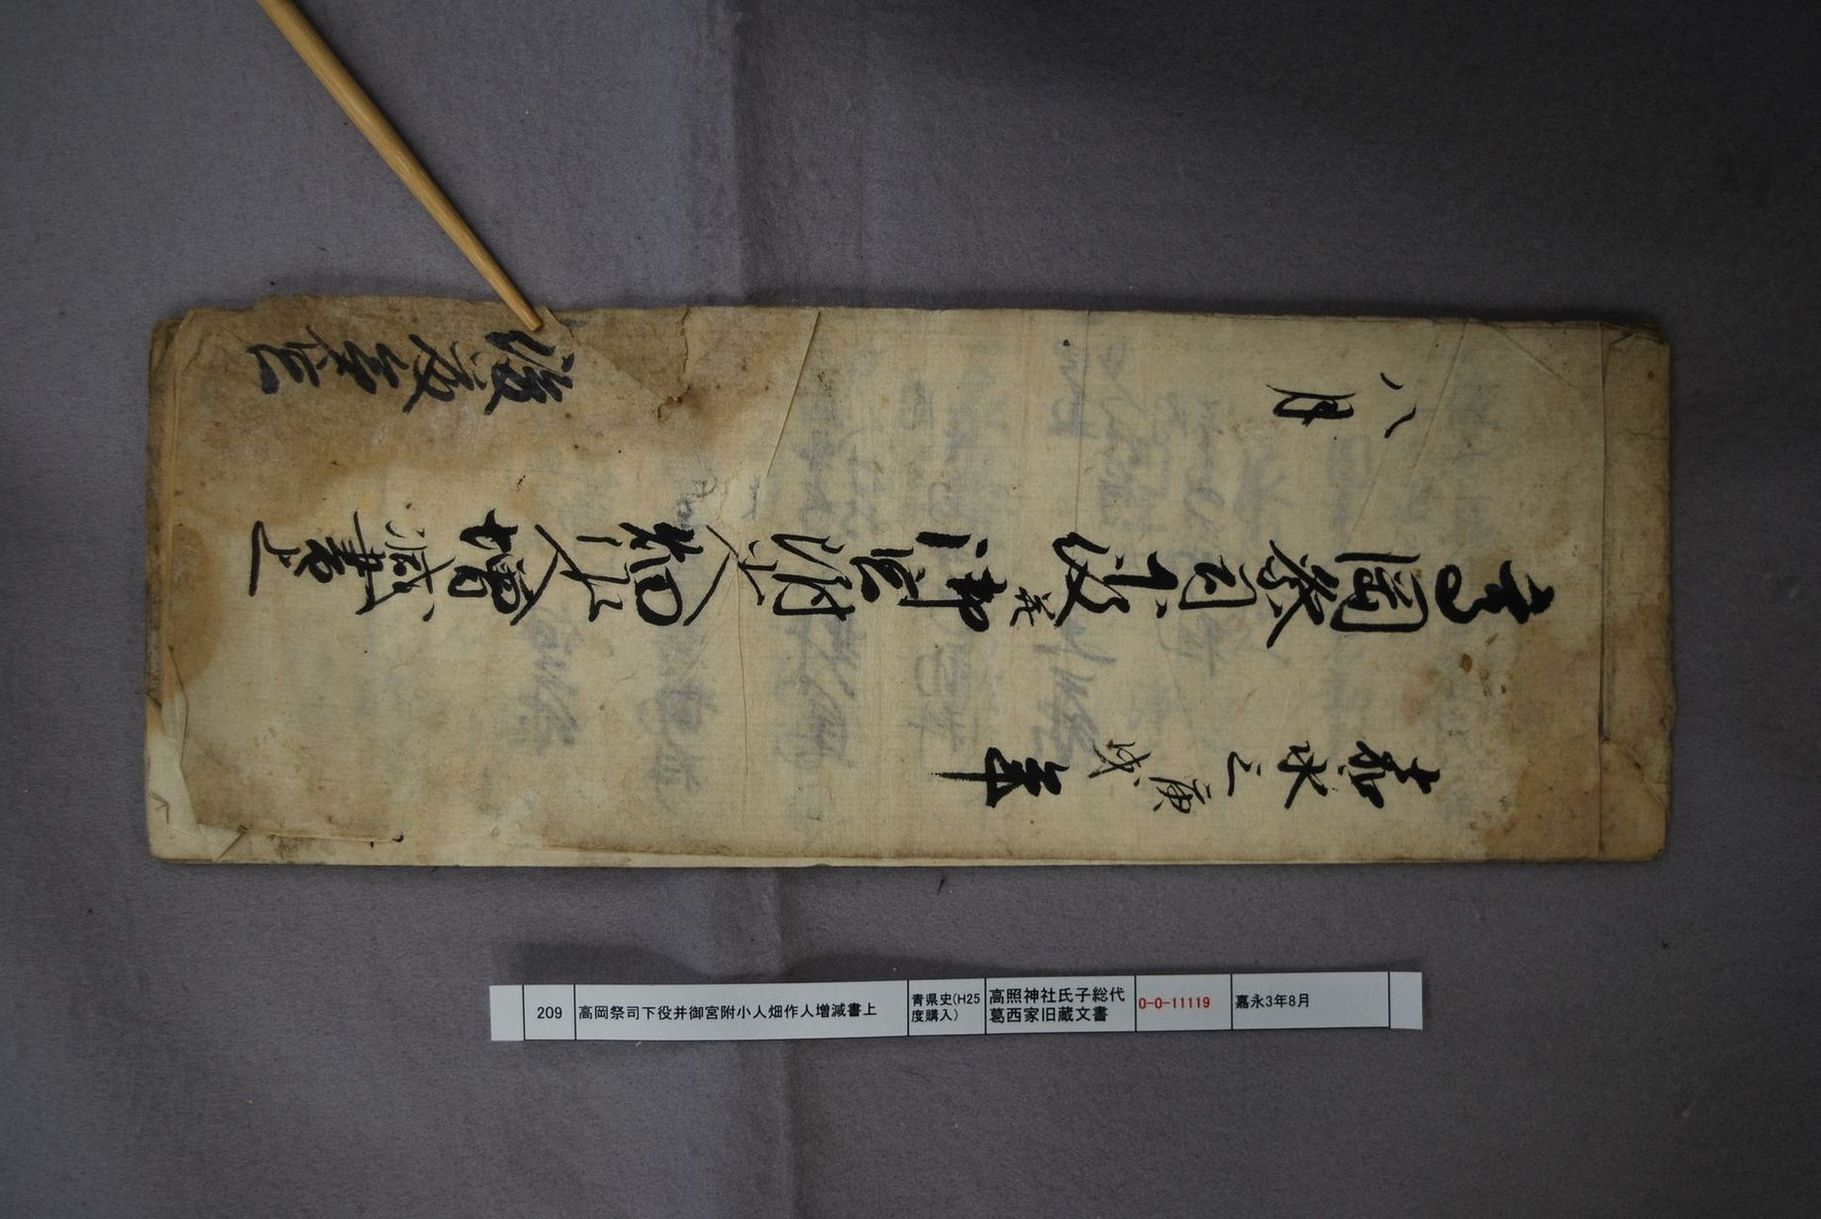 嘉永三庚戌年
高岡祭司下役并御宮附小人畑作人増減書上
八月
209
高岡祭司下役并御宮附小人畑作人増減書上
青県史(H25
度購入)
高照神社氏子総代
葛西家旧蔵文書
0-0-11119
嘉永3年8月